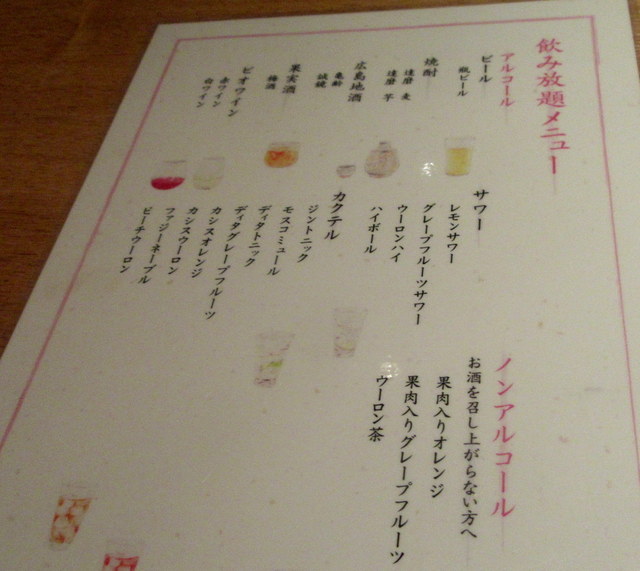 飲み放題メニュー
アルコール
ビール
瓶ビール
焼酎
達磨 麦
達磨 芋
広島地酒
亀齢
誠鏡
果実酒
梅酒
ビオワイン
赤ワイン
白ワイン
サワー
レモンサワー
グレープフルーツサワー
ウーロンハイ
ハイボール
カクテル
ジントニック
モスコミュール
ディタトニック
ディタグレープフルーツ
カシスオレンジ
カシスウーロン
ファジーネーブル
ピーチウーロン
ノンアルコール
お酒を召し上がらない方へ
果肉入りオレンジ
果肉入りグレープフルーツ
ウーロン茶